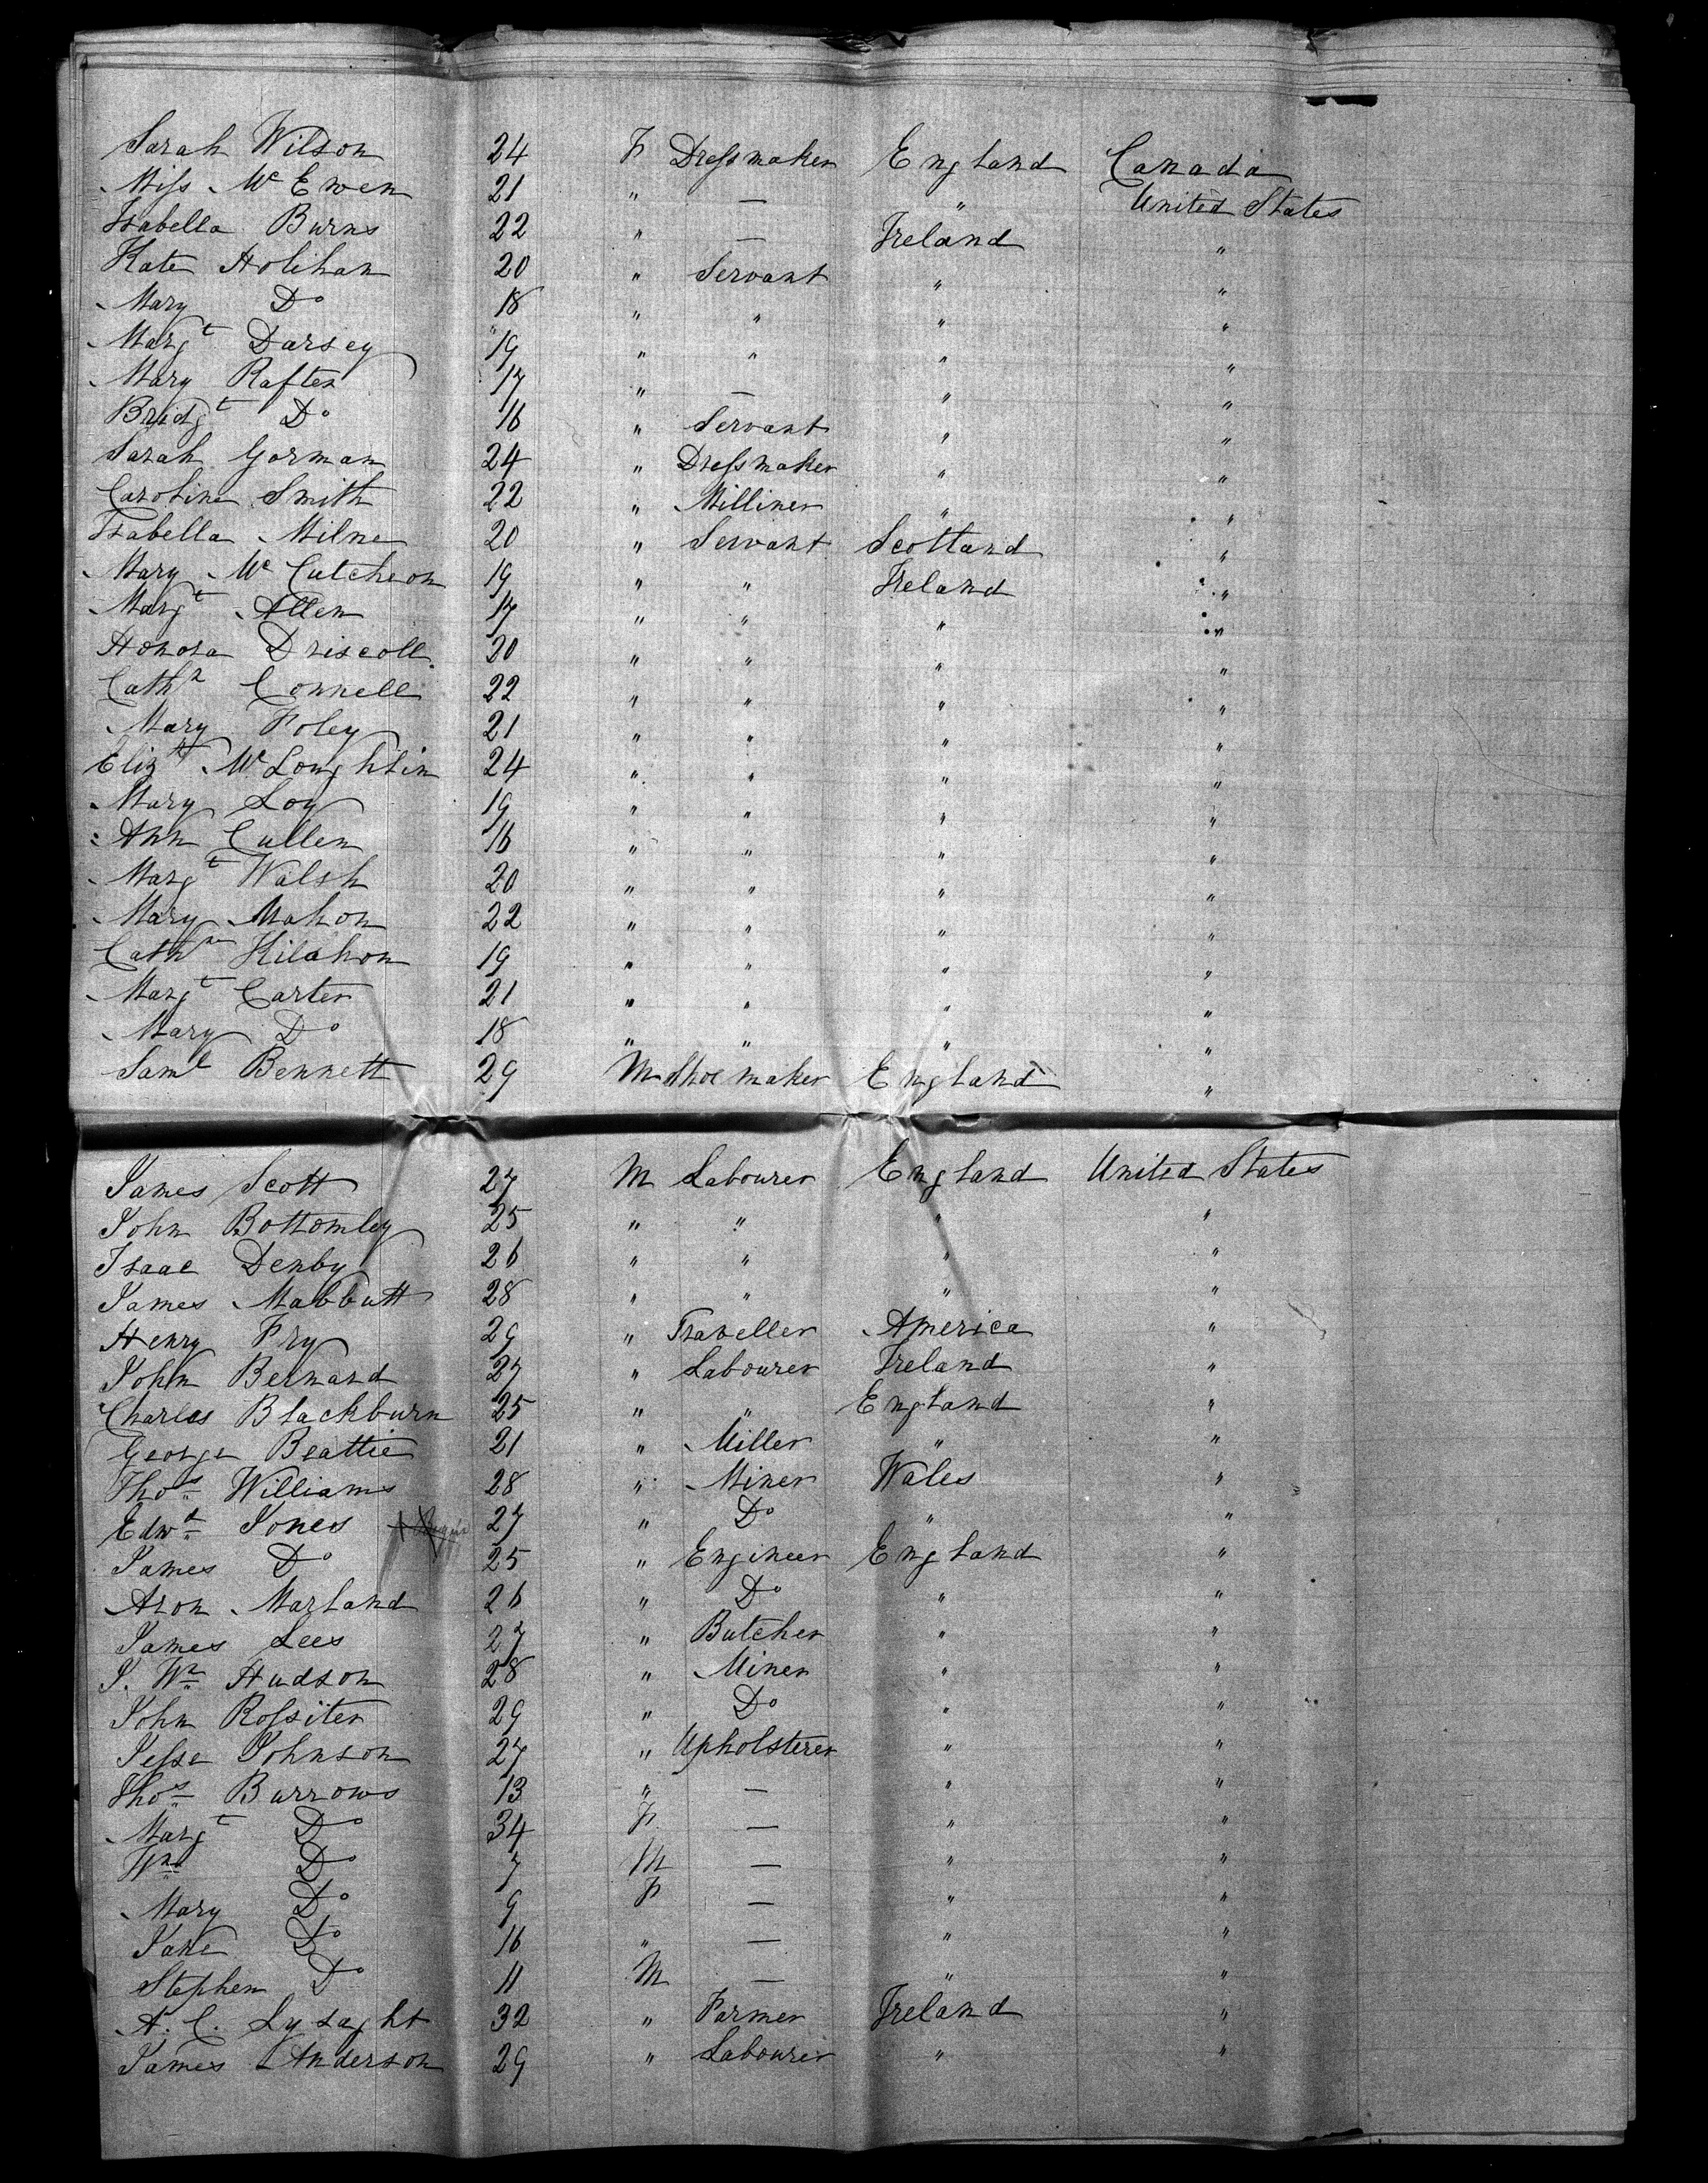 Sarah Wilson 24 F Dressmaker England Canada
Miss Mc Ewen 21 " — " United States
Isabella Burns 22 " — Ireland "
Kate Holihan 20 " Servant " "
Mary Do 18 " " " "
Margt Darsey 19 " " " "
Mary Rafter 17 " — " "
Bridgt Do 16 " Servant " "
Sarah Gorman 24 " Dressmaker " "
Caroline Smith 22 " Milliner " "
Isabella Milne 20 " Servant Scotland "
Mary Mc Cutcheon 19 " " Ireland "
Margt Allen 17 " " " "
Honora Driscoll 20 " " " "
Cathn Connell 22 " " " "
Mary Foley 21 " " " "
Elizth McLoughlin 24 " " " "
Mary Loy 19 " " " "
Ann Cullen 16 " " " "
Margt Walsh 20 " " " "
Mary Mahon 22 " " " "
Cathn Kilahon 19 " " " "
Margt Carter 21 " " " "
Mary Do 18 " " " "
Saml Bennett 29 M Shoemaker England "
James Scott 27 M Labourer England United States
John Bottomley 25 " " " "
Isaac Denby 26 " " " "
James Mabbutt 28 " " " "
Henry Fry 29 " Traveller America "
John Bernard 27 " Labourer Ireland "
Charles Blackburn 25 " " England "
George Beattie 21 " Miller " "
Thos Williams 28 " Miner Wales "
Edwd Jones 27 " Do " "
James Do 25 " Engineer England "
Aron Marland 26 " Do " "
James Lees 27 " Butcher " "
J. Wm Hudson 28 " Miner " "
John Rossiter 29 " Do " "
Jesse Johnson 27 " Upholsterer " "
Thos Burrows 13 " — " "
Margt Do 34 F — " "
Wm Do 7 M — " "
Mary Do 9 F — " "
Jane Do 16 " — " "
Stephen Do 11 M — " "
A. C. Lysaght 32 " Farmer Ireland "
James Anderson 29 " Labourer " "